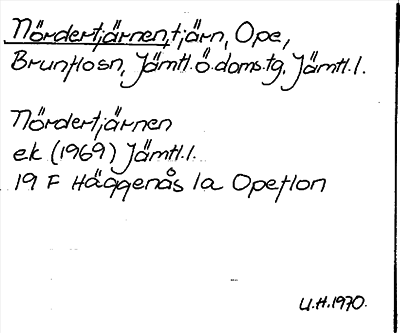 Nördertjärnen, tjärn, Ope,
Brunflo sn, Jämtl. ö. doms. tg. Jämtl. l.
Nördertjärnen
ek (1969) Jämtl. l.
19 F Häggenås 1a Opeflon
U.H. 1970.